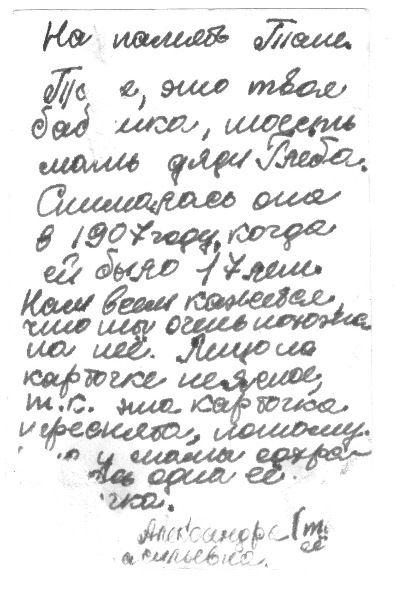 На память Тане.
Та е, это твоя
баб шка, тоесть
мать дяди Глеба.
Снималась она
в 1907 году, когда
ей было 17 лет.
Нам всем кажется,
что ты очень похожа
на неё. Лицо на
карточке неясное,
т.к. эта карточка
переснята, потому.
о у мамы сохра
сь одна её
чка.
Александра (т.
сильевна. её